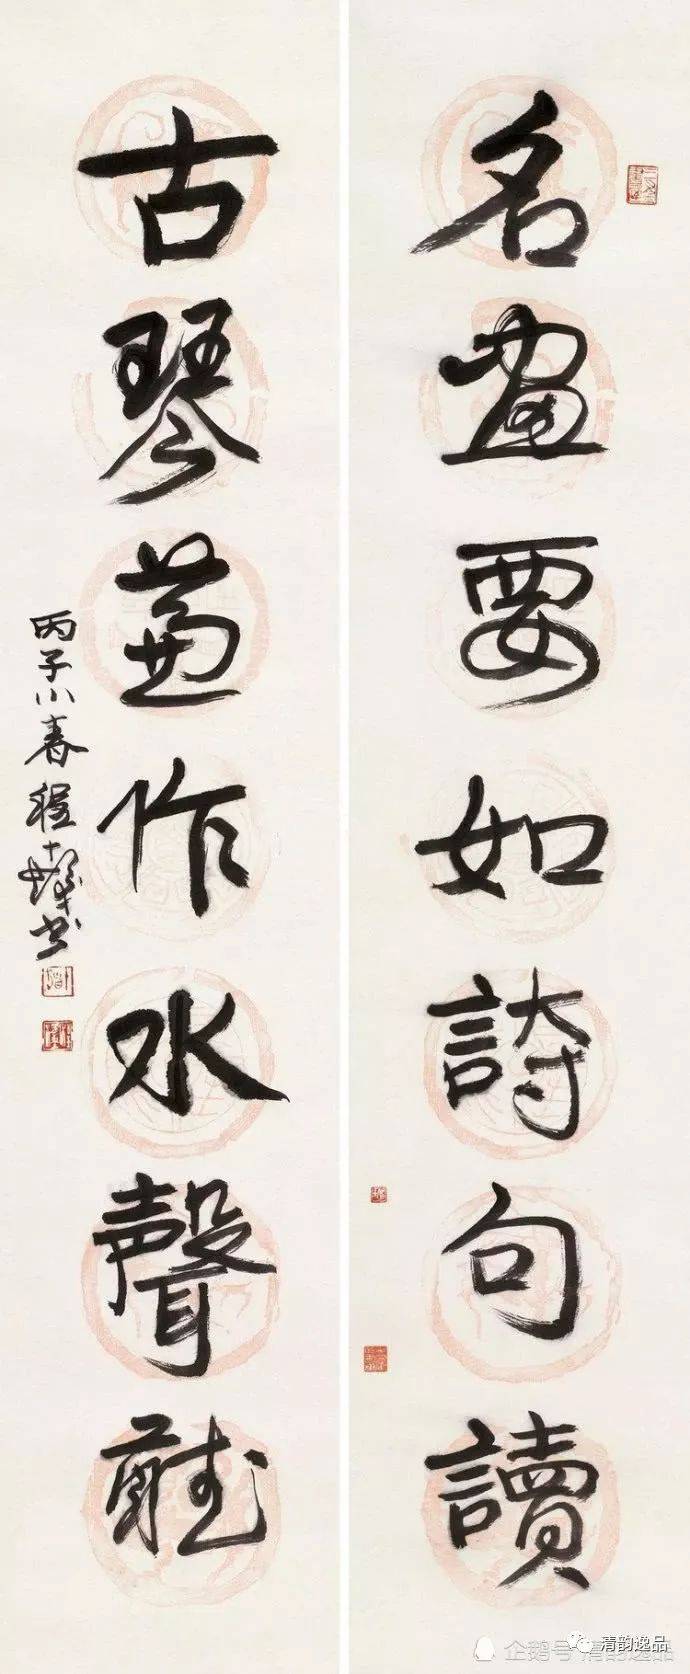 名畫要如詩句讀
古琴兼作水聲聽
丙子小春程十髮書
企鹅号 清韵逸品
清韵逸品